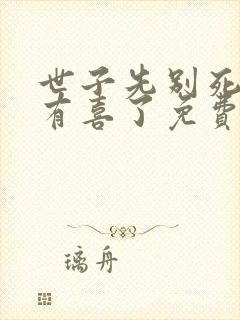 世子先别死
有喜了免费
璃舟